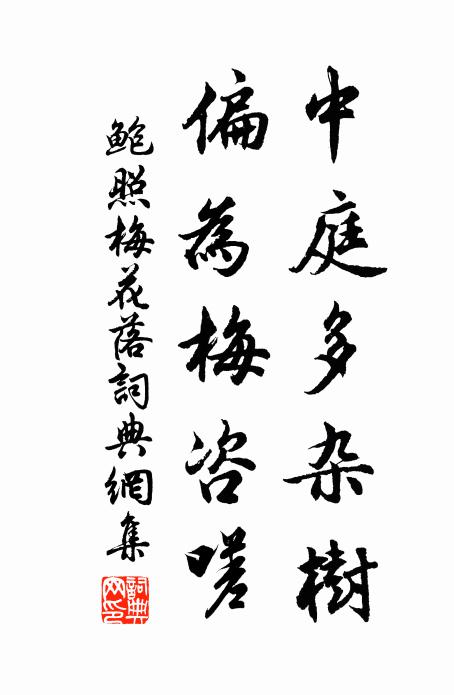 中庭多杂樹
偏為梅咨嗟
鲍照梅花落詞典網集
詞典
网印